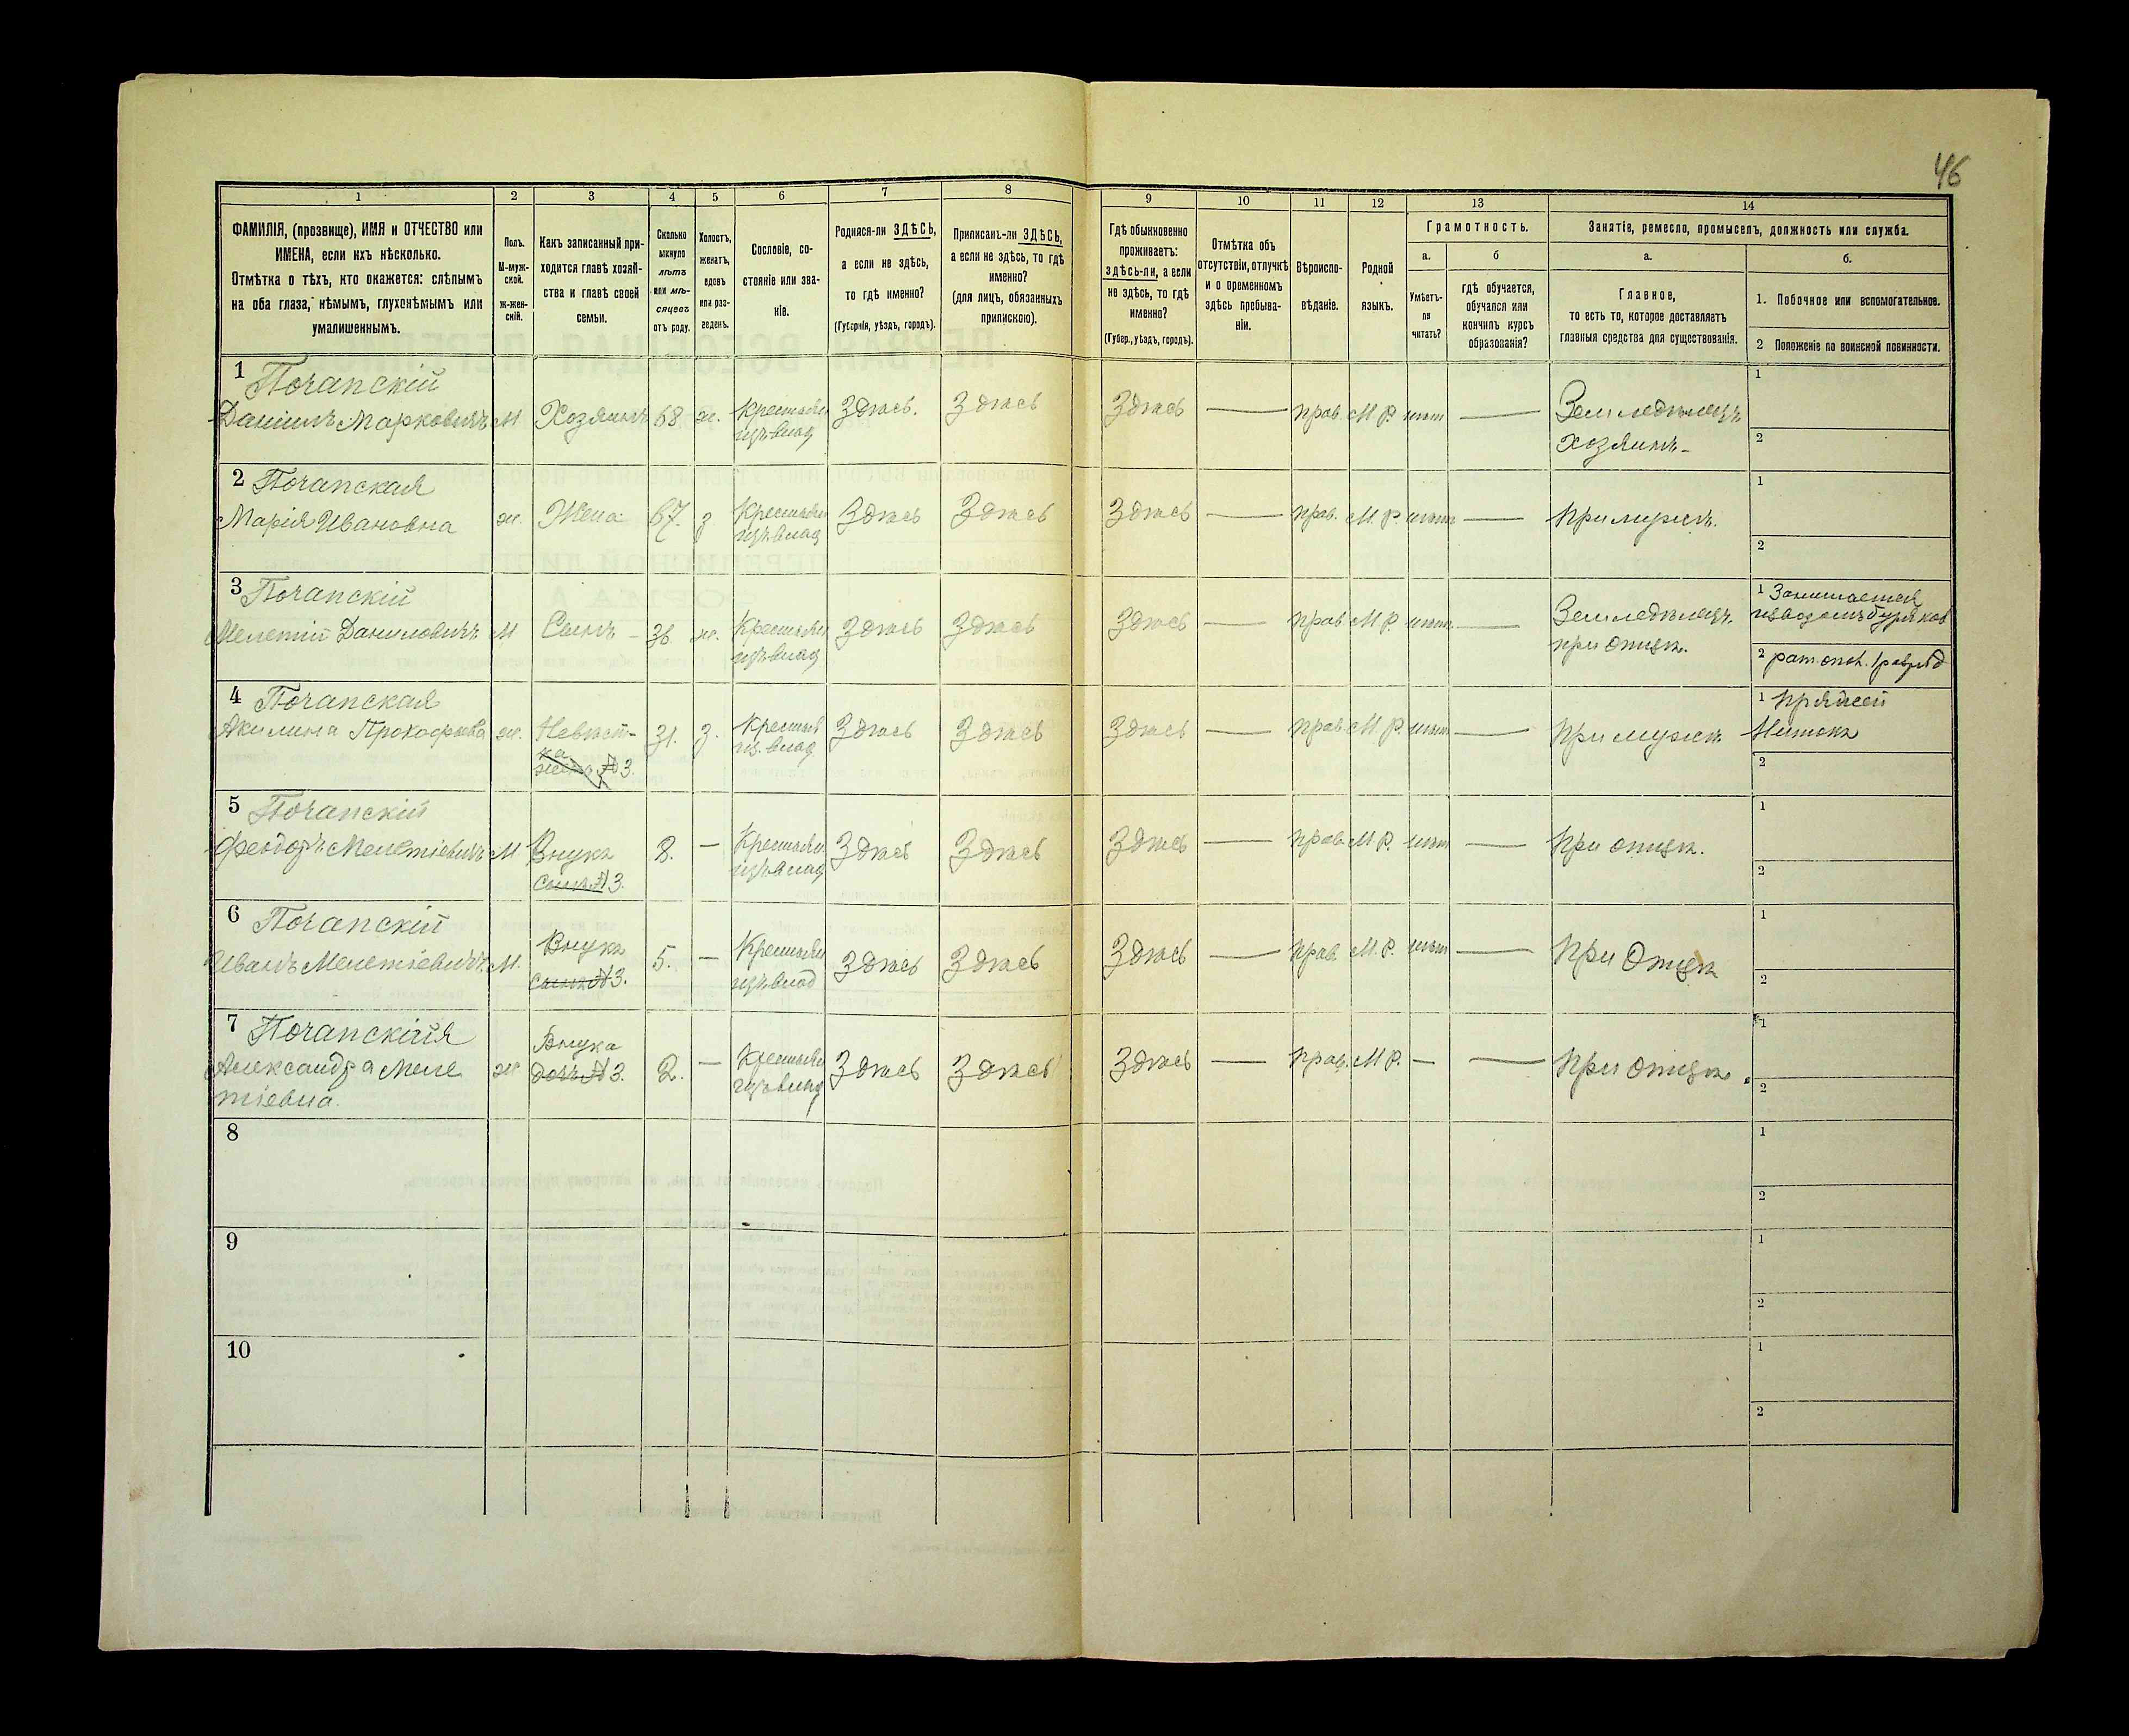 46
1 2 3 4 5 6 7 8 9 10 11 12 13 14
ФАМИЛІЯ, (прозвище), ИМЯ и ОТЧЕСТВО или
ИМЕНА, если ихъ нѣсколько.
Отмѣтка о тѣхъ, кто окажется: слѣпымъ
на оба глаза, нѣмымъ, глухонѣмымъ или
умалишеннымъ.
Полъ.
М-муж-
ской.
ж-жен-
скій.
Какъ записанный при-
ходится главѣ хозяй-
ства и главѣ своей
семьи.
Сколько
минуло
лѣтъ
или мѣ-
сяцевъ
отъ роду.
Холостъ,
женатъ,
вдовъ
или раз-
веденъ.
Сословіе, со-
стояніе или зва-
ніе.
Родился-ли ЗДѢСЬ,
а если не здѣсь,
то гдѣ именно?
(Губернія, уѣздъ, городъ).
Приписанъ-ли ЗДѢСЬ,
а если не здѣсь, то гдѣ
именно?
(для лицъ, обязанныхъ
припискою).
Гдѣ обыкновенно
проживаетъ:
здѣсь-ли, а если
не здѣсь, то гдѣ
именно?
(Губер., уѣздъ, городъ).
Отмѣтка объ
отсутствіи, отлучкѣ
и о временномъ
здѣсь пребыва-
ніи.
Вѣроиспо-
вѣданіе.
Родной
языкъ.
Грамотность.
а.
Умѣетъ-
ли
читать?
б
гдѣ обучается,
обучался или
кончилъ курсъ
образованія?
Занятіе, ремесло, промыселъ, должность или служба.
а.
Главное,
то есть то, которое доставляетъ
главныя средства для существованія.
б.
1. Побочное или вспомогательное.
2 Положеніе по воинской повинности.
1 Почапскій
Даніилъ Марковичъ М Хозяинъ 68 ж. Крестьян Здѣсь. Здѣсь Здѣсь — прав. М Р. нѣт — Земледѣлецъ 1
изъ влад хозяинъ- 2
2 Почапская
Марія Ивановна ж. Жена 67. з Крестьян Здѣсь Здѣсь Здѣсь — прав. М. Р. нѣт — При мужѣ. 1
изъ влад 2
3 Почапскій
Мелетій Даниловичъ М Сынъ 36 ж. Крестьян Здѣсь Здѣсь Здѣсь — прав М Р. нѣт. — Земледѣлецъ. 1 Занимается
изъ влад при отцѣ. извозомъ буряков
2 рат. опол. 1 разряд
4 Почапская
Акилина Прокофіева ж. Невѣст- 31. з. Крестьян Здѣсь Здѣсь Здѣсь — прав М. Р. нѣт — При мужѣ 1 пряжей
ка из. влад нитокъ
жена № 3. 2
5 Почапскій
Феодоръ Мелетіевичъ М Внукъ 8. — Крестьян Здѣсь Здѣсь Здѣсь — прав. М Р. нѣт — При отцѣ. 1
сынъ № 3. изъ влад 2
6 Почапскій
Иванъ Мелетіевичъ М. Внукъ 5. — Крестьян Здѣсь Здѣсь Здѣсь — прав. М. Р. нѣт — При Отцѣ 1
сынъ № 3. изъ влад 2
7 Почапскійя
Александра Меле ж Внука 2. — Крестьян Здѣсь Здѣсь Здѣсь — прав. М Р. — — При отцѣ. 1
тіевна. дочь № 3. изъ влад 2
8 1
2
9 1
2
10 1
2